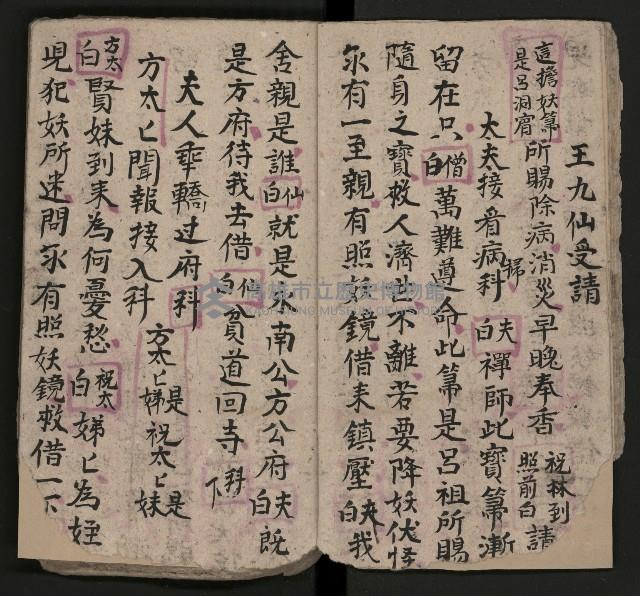 王九仙受請
這擔妖箒是呂洞賓所賜除病消災早晚奉香祝林到照前白請
太夫接看病科掃白夫禪師此寶箒漸
留在只白僧萬難遵命此箒是呂祖所賜
隨身之寶救人濟世不離若要降妖伏怪
永有一至親有照妖鏡借来鎮壓白夫我
舍親是誰白仙就是水南公方公府白夫既
是方府待我去借白仙貧道回寺科下
夫人乘轎过府科
方太匕聞報接入科方太匕是娣祝太匕是妹
方太白賢妹到来為何憂愁白祝太娣匕為姪
児犯妖所迷問永有照妖鏡救借一下
高雄市立歷史博物館
KAOHSIUNG MUSEUM OF HISTORY